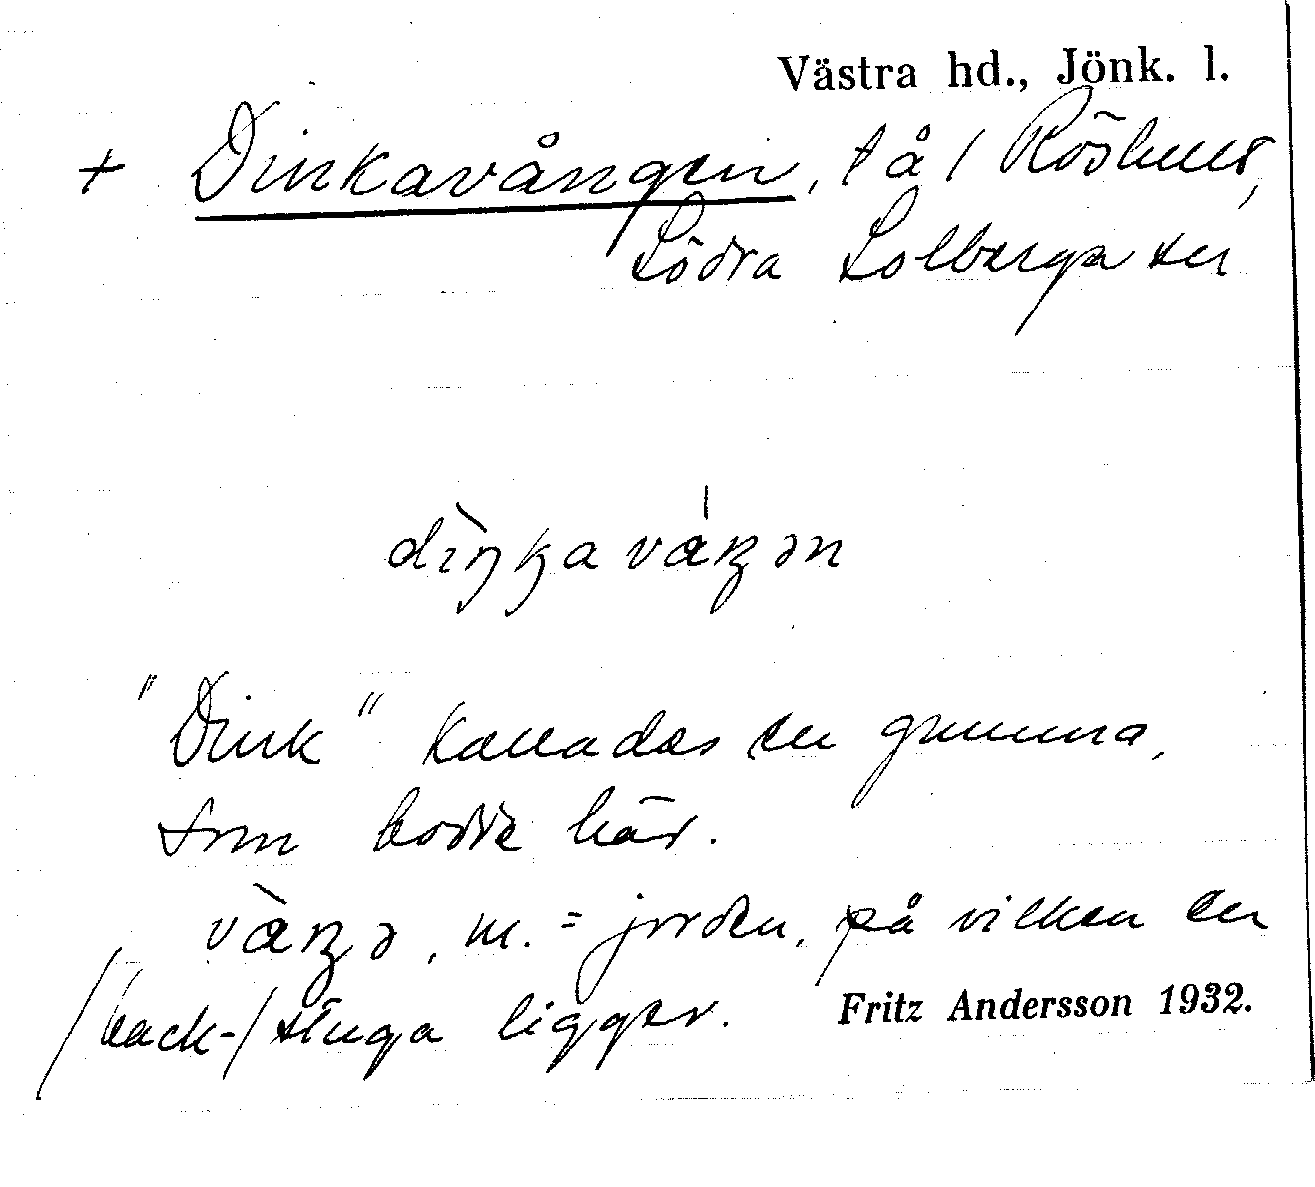 Västra hd., Jönk. l.
+ Dinkavången, t å / Röshult,
Södra Solberga sn
diŋkavåŋən
"Dink" kallades en gumma,
som bodde här.
våŋə, m. = jorden, på vilken en
/back-/stuga ligger.
Fritz Andersson 1932.